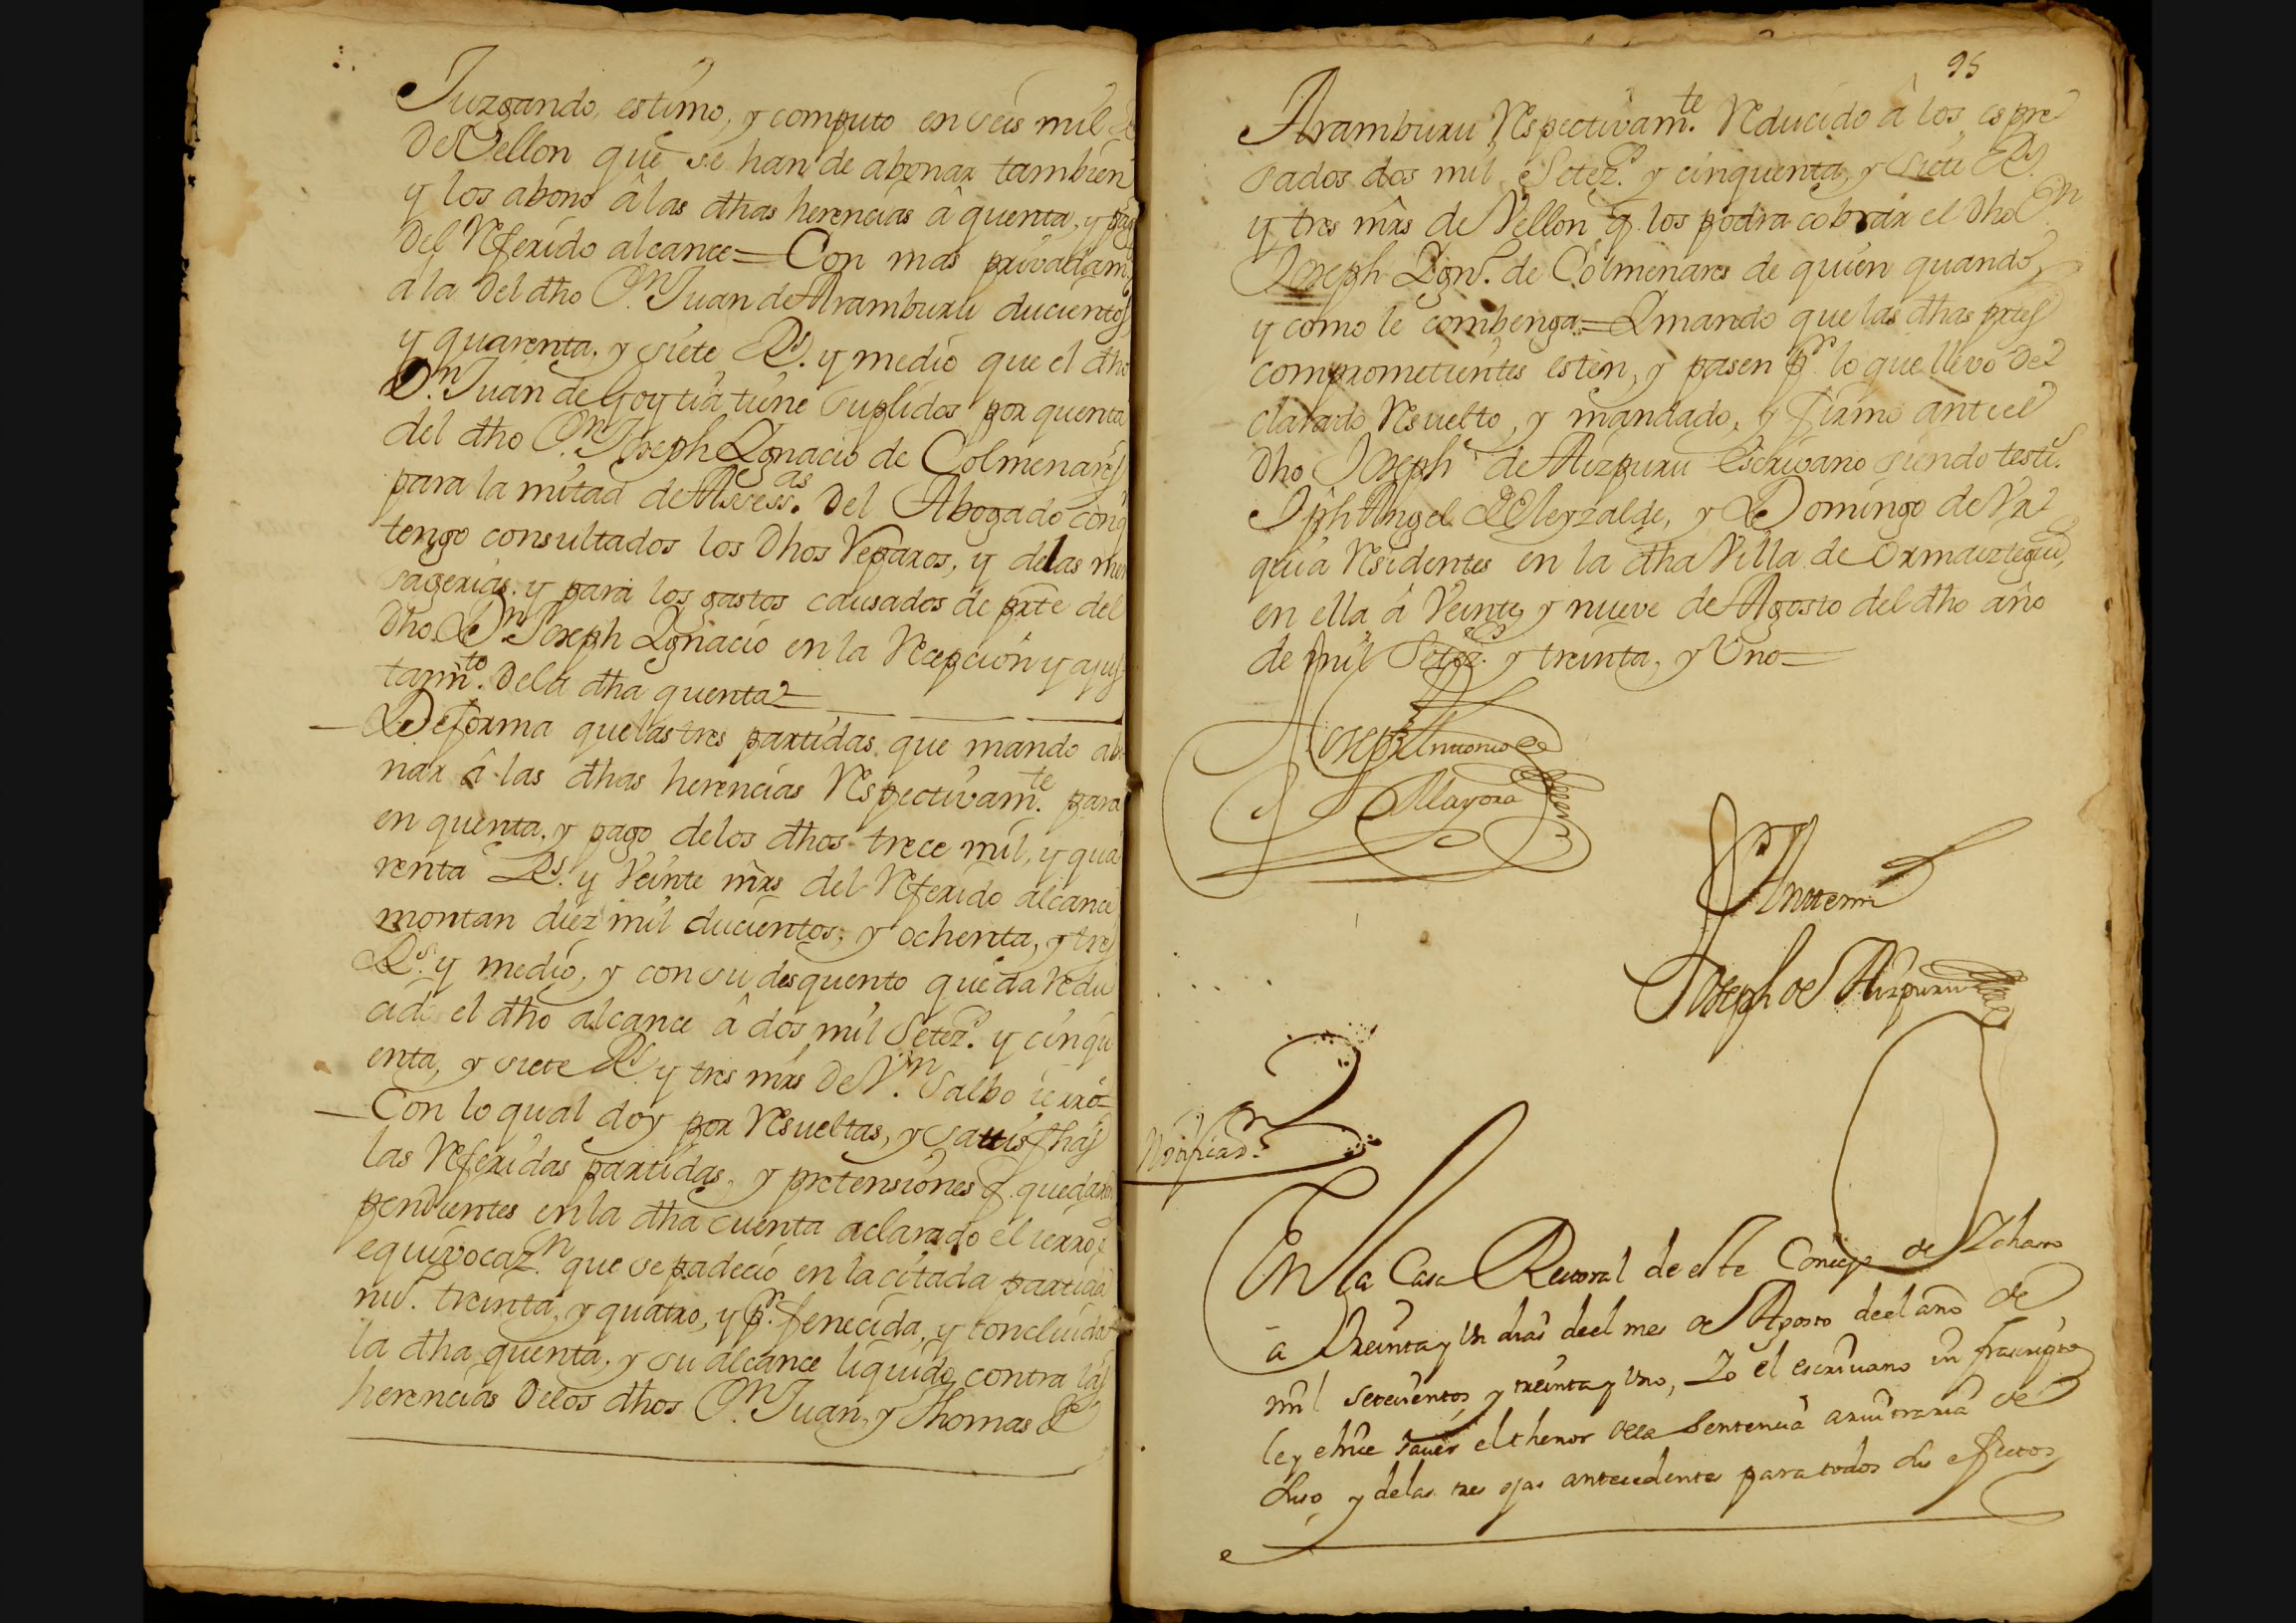 Juzgando, estimo, y computo en seis mil Rs
De Vellon que se han de abonar tambien
y los abono â las dhas herencias â quenta, y pago
Del Referido alcance = Con mas privadam.
a la Del dho Dn. Juan de Aramburu ducientos
y quarenta, y siete Rs. y medio que el dho
Dn. Juan de Goytia tiene suplidos por quenta
del dho Dn. Joseph Ignacio de Colmenares
para la mitad de Assess.as Del Abogado con q
tengo consultados los Dhos Reparos, y de las men
sagerias, y para los gastos causados de prte del
Dho Dn. Joseph Ignacio en la Recepcion y ajus
tam.to Dela dha quenta
De forma que las tres partidas que mando abo
nar â las dhas herencias Respectivam.te para
en quenta, y pago delos dhos trece mil, y qua
renta Rs. y Veinte mrs del Referido alcance
montan diez mil ducientos, y ochenta, y tres
Rs. y medio, y con su desquento queda redu
cido el dho alcance â dos mil Setez.s y cinqu
enta, y siete Rs y tres mrs De Vn. Salbo ierro =
Con lo qual doy por Resueltas, y satisfhas
las Referidas partidas, y pretensiones q. quedaron
pendientes en la dha cuenta aclarado el ierro, o
equivocaz.n que se padecio en la citada partida
nu. treinta, y quatro, y pr. fenecida, y concluida
la dha quenta, y su alcance liquido contra las
herencias Delos dhos Dn. Juan, y Thomas de
95
Aramburu Respectivam.te Reducido â los espre
sados dos mil Setez.s y cinquenta, y siete Rs.
y tres mrs de Vellon q. los podra cobrar el Dho Dn
Joseph Ign.o de Colmenares de quien quando,
y como le combenga = Y mando que las dhas prtes
comprometientes esten, y pasen pr. lo que llevo De
clarado Resuelto, y mandado, y firmo ante el
Dho Joseph de Aizpuru Escrivano siendo testi.
Jph Angel de Eleyzalde, y Domingo de Ur
quia Residentes en la dha Villa de Ormaiztegui,
en ella â Veinte y nueve de Agosto del dho año
de mil Setez.s y treinta, y Uno =
Joseph Antonio de
Mayora
Ante mi
Joseph de Aizpuru
Notificaz.n
En la Casa Rectoral de este Concejo de Ichaso
â treinta y un dias deel mes de Agosto deel año de
mil setecientos y treinta y uno, Yo el escrivano infrascripto
ley e hice saver el thenor dela Sentencia arvitraria de
suso y delas tres ojas antecedentes para todos sus efectos